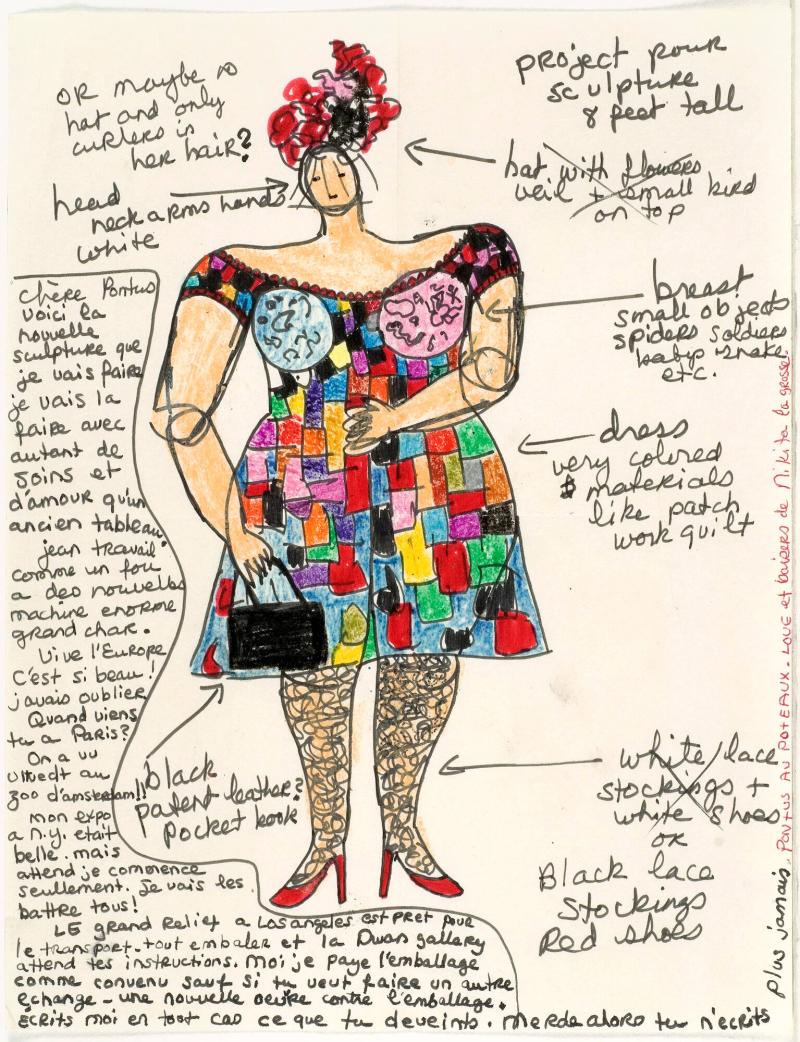 project pour
sculpture
8 feet tall
OR maybe no
hat and only
curlers in
her hair?
hat with flowers
veil + small bird
on top
head
neck arms hands
white
breast
small objects
spiders soldiers
baby snake
etc.
dress
very colored
materials
like patch
work quilt
black
patent leather?
pocket book
white lace
stockings +
white shoes
or
Black lace
stockings
Red shoes
chère Pontus
voici la
nouvelle
sculpture que
je vais faire
je vais la
faire avec
autant de
soins et
d'amour qu'un
ancien tableau
jean travail
comme un fou
a des nouvelles
machine enorme
grand char.
Vive l'Europe
C'est si beau!
j'avais oublier
Quand viens
tu a Paris?
On a vu
au
zoo d'amsterdam!!
mon expo
a N.Y. etait
belle. mais
attend je commence
seulement. Je vais les
battre tous!
LE grand Relief a Los angeles est pret pour
le transport. tout embaler et la Dwan gallery
attend tes instructions. Moi je paye l'emballage
comme convenu sauf si tu veut faire un autre
echange - une nouvelle oeuvre contre l'emballage.
Ecrits moi en tout cas ce que tu deveints. Merde alors tu n'ecrits
plus jamais
Pontus AU POTEAUX. LOVE et baisers de Nikita la grosse.